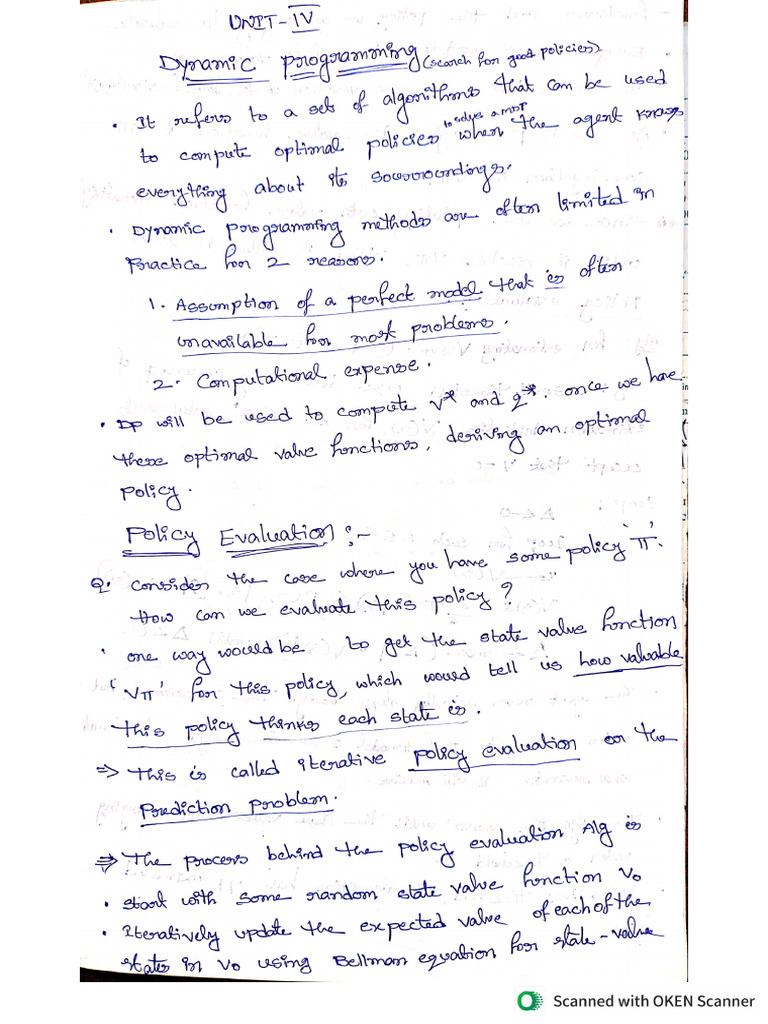 UNIT-IV
Dynamic Programming (search for good policies)
• It refers to a set of algorithms that can be used
to solve a MDP
to compute optimal policies when the agent knows
everything about its sourroundings.
• Dynamic programming methods are often limited in
Practice for 2 reasons.
1. Assumption of a perfect model that is often
unavailable for most problems.
2. Computational expense.
• DP will be used to compute v* and q*. once we have
these optimal value functions, deriving an optimal
policy.
Policy Evaluation :-
Q. Consider the case where you have some policy 'π'.
How can we evaluate this policy?
• one way would be to get the state value function
'Vπ' for this policy, which would tell us how valuable
this policy thinks each state is.
⇒ This is called iterative policy evaluation or the
Prediction problem.
⇒ The process behind the policy evaluation Alg is
• start with some random state value function V0
• Iteratively update the expected value of each of the
states in V0 using Bellman equation for state-value
Scanned with OKEN Scanner